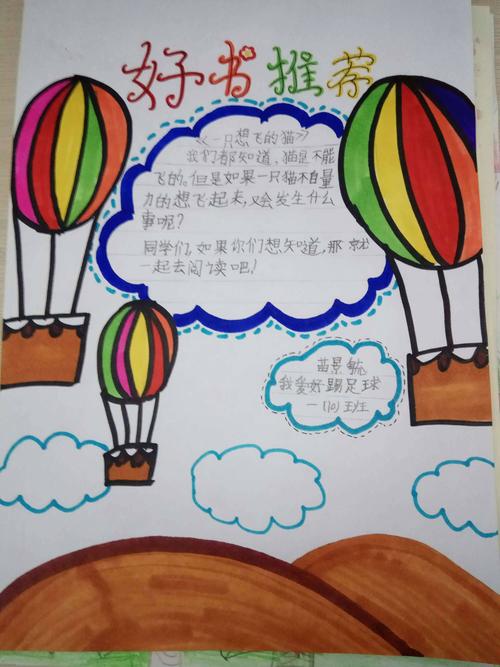 好书推荐
《一只想飞的猫》
我们都知道，猫是不能
飞的。但是如果一只猫不自量
力的想飞起来，又会发生什么
事呢？
同学们，如果你们想知道，那就
一起去阅读吧！
苗景毓
我爱好踢足球
一(10)班